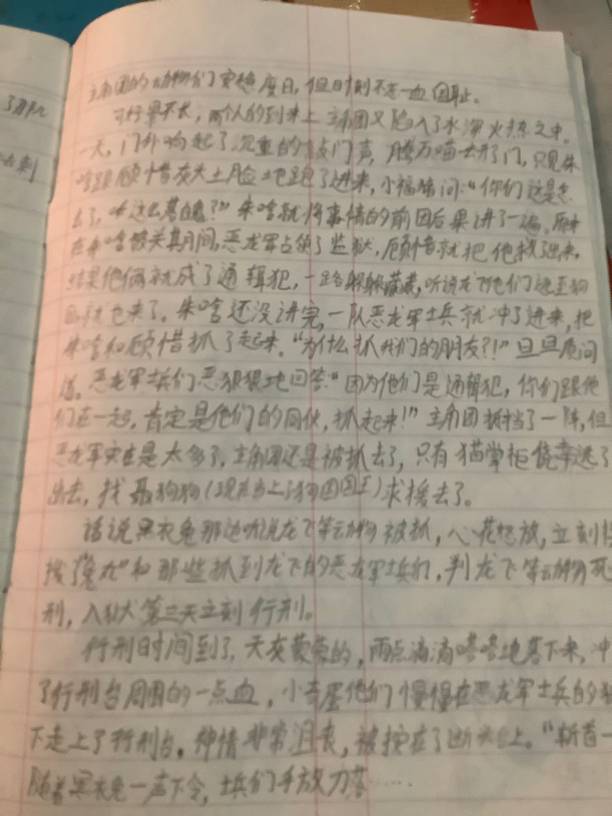 主角团的动物们安稳度日,但时刻不忘血国耻。
可行景不长,两个人的到来上主角团又陷入了水深火热之中。
一天,门外响起了沉重的敲门声,腾万喵去开了门,只见朱
啥跟顾惜灰头土脸地跑了进来,小福猪问:“你们这是怎
么了,咋这么落魄?”朱啥就将事情的前因后果讲了一遍。原来
在朱啥被关其间,恶龙军占领了监狱,顾惜就把他救了出来,
结果他俩就成了通辑犯,一路躲躲藏藏,听说龙飞他们逃至狗
国就也来了。朱啥还没讲完,一队恶龙军士兵就冲了进来,把
朱啥和顾惜抓了起来。“为什么抓我们的朋友?!”旦旦质问
道。恶龙军士兵们恶狠狠地回答:“因为他们是通辑犯,你们跟他
们在一起,肯定是他们的同伙,抓起来!”主角团抵挡了一阵,但
恶龙军实在是太多了,主角团还是被抓去了,只有猫掌柜侥幸逃了
出去,找聂狗狗(现在当上了狗国国王)求援去了。
话说黑衣兔那边听说龙飞等动物被抓,心花怒放,立刻
和那些抓到龙飞的恶龙军士兵们,判龙飞等动物死
刑,入狱第三天立刻行刑。
行刑时间到了,天灰蒙蒙的,雨点滴滴嗒嗒地落下来,冲
了行刑台周围的一点血,小吞蛋他们慢慢在恶龙军士兵的
下走上了行刑台。神情非常沮丧,被按在了断头台上。“斩首
随着黑衣兔一声下令,士兵们手放刀落……